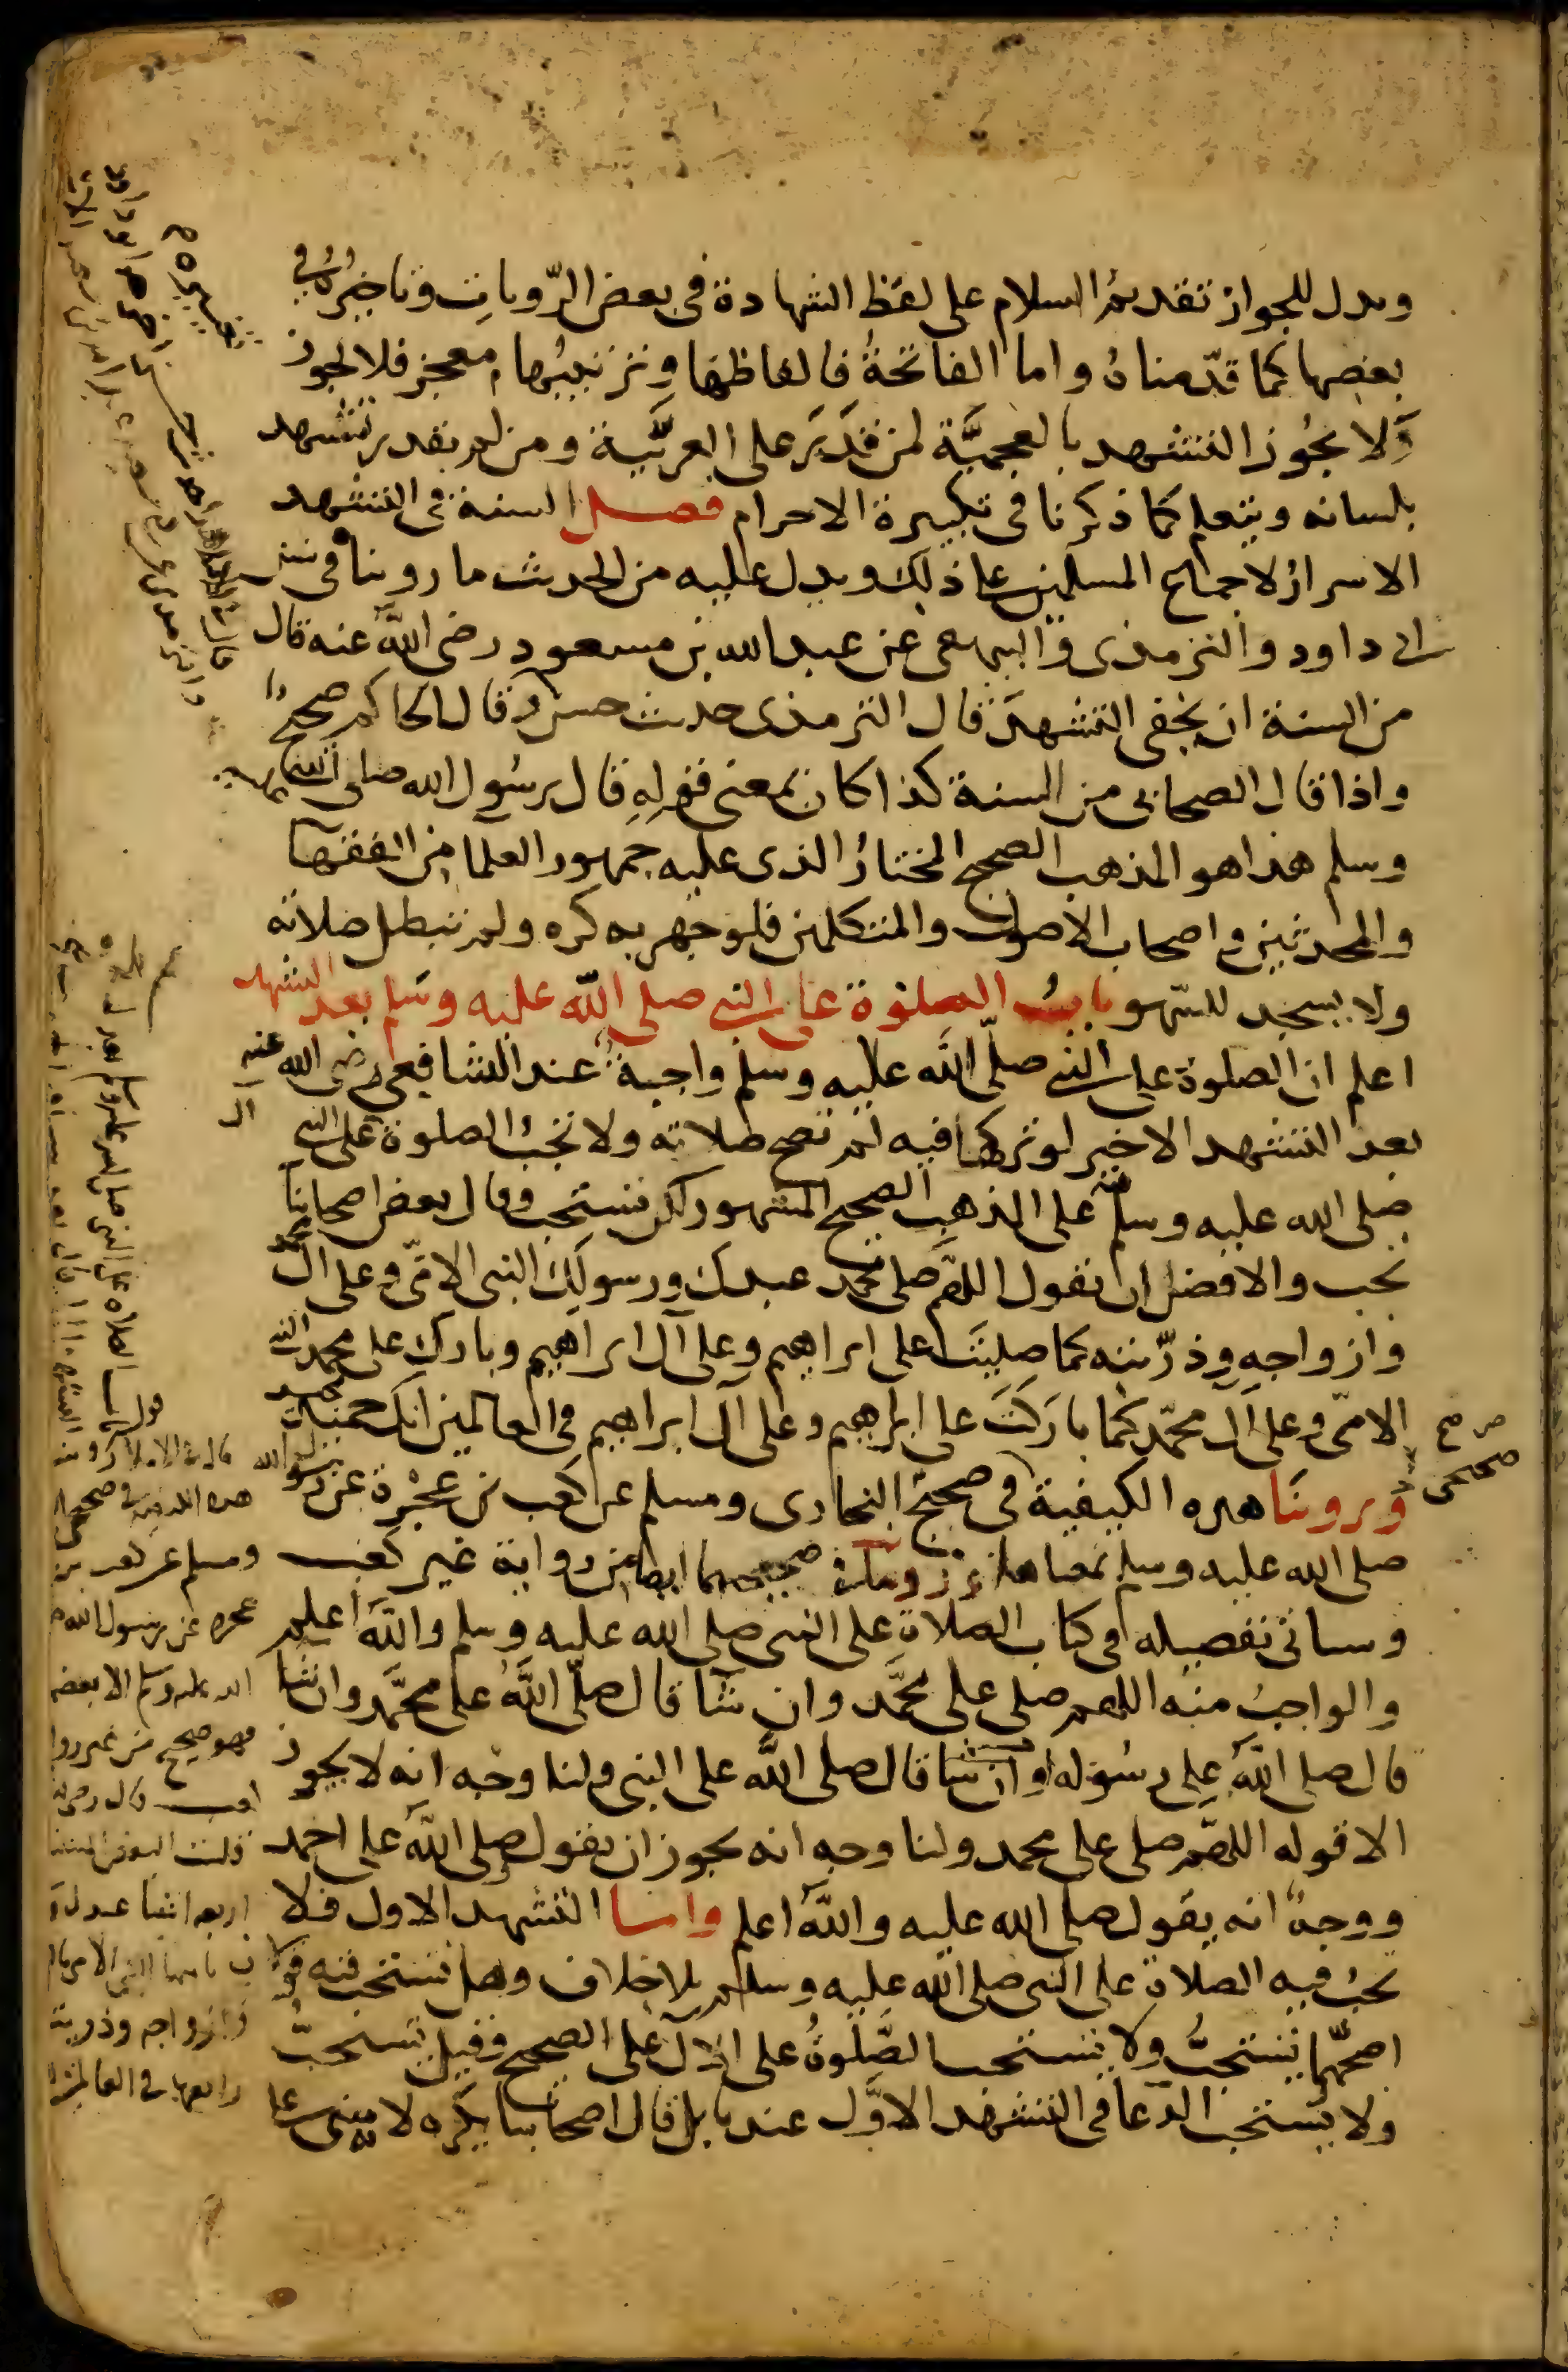 ويدل للجواز تقديمُ السلام على لفظ الشهادة فى بعض الرّوياتِ وتاخيرُهُ فى
بعضها كما قدّمناهُ واما الفاتحةُ فالفاظها وترتيبُها معجز فلا يجوز
وَلا يجُوز التشهد بالعجميَّة لمن قَدَرَ على العربيَّة ومن لم يقدر يتشهد
بلسانه ويتعلم كما ذكرنا فى تكبيرة الاحرام فصل السنة فى التشهد
الاسرارُ لاجماع المسلمين على ذلك ويدل عليه من الحديث ما روينا فى سنن
ابى داود والترمذى والبيهقى عن عبد الله بن مسعود رضى اللَّه عنه قال
من السنة ان يخفى التشهدَ قال الترمذى حديث حسن وقال الحاكم صحيحٌ
واذا قال الصحابى من السنة كذا كان بمعنى قولِهِ قال رسُول الله صلى الله عليه
وسلم هذا هو المذهب الصحيح المختارُ الذى عليه جمهور العلما من الفقها
والمحدثين واصحاب الاصول والمتكلمين فلو جهر به كره ولم تبطل صلاته
ولا يسجد للسّهو بابُ الصلوة على النبى صلى اللَّه عليه وسَلم بعد التشهد
اعلم ان الصلوة على النبى صلّى اللَّه عليه وسلم واجبةٌ عند الشافعى رضى الله عنه
بعد التشهد الاخير لو تركها فيه لم تصح صلاته ولا تجبُ الصلوة على النبى
صلى الله عليه وسلم فيه على المذهب الصحيح المشهور لكن تستحب وقال بعض اصحابناً
تجب والافضل ان تقول اللهُمّ صل على محمد عبدك ورسولِكَ النبى الامّى وعلى ال محمد
وازواجِهِ وذرّيته كما صليتَ على ابراهيم وعلى آل ابراهيم وبارك على محمد النبى
الامّى وعلى ال محمّد كما باركتَ على ابراهيم وعلى آل ابراهيم فى العالمين انك حميد مجيد
وروينَا هذه الكيفية فى صحيح البخارى ومسلم عن كعب بن عُجْرة عن رسول الله
صلى الله عليه وسلم الا بعضها صحيحهما ايضا من رواية غير كعب
وسياتى تفصيله فى كتاب الصلاةِ على النبى صلى الله عليه وسلم واللَّه اعلم
والواجبُ منه اللهم صلى على محمَّد وان شآ قال صلّى اللَّهُ على محمَّد وان شا
قال صلى اللَّهُ على رسُوله او ان شا قال صلى اللَّه على النبى ولنا وجه انه لا يجوز
الا قوله اللهُمّ صلى على محمد ولنا وجه انه يجوز ان يقول صلى اللَّه على احمد
ووجهٌ انه يقول صلى الله عليه واللَّهُ اعلم واما التشهد الاول فلا
تجبُ فيه الصلاة على النبى صلى اللَّه عليه وسلم بلا خلاف وهل تستحب فيه قولان
اصحّهما تستحبُّ ولا تستحب الصَّلوةُ على الآل على الصحيح وقيل تستحبّ
ولا يستحب الدّعا فى التشهد الاوَّل عندنا بل قال اصحابنا يكره لانه مبنى على
هذه الكيفية فى صحيح
ومسلم عن كعب بن
عجره عن رسول الله صلى
الله عليه وسلم الا بعضها
فهو صحيح من غير رواية
كعب قال رضى
وازواجه وذريته
رابعها فى العالمين